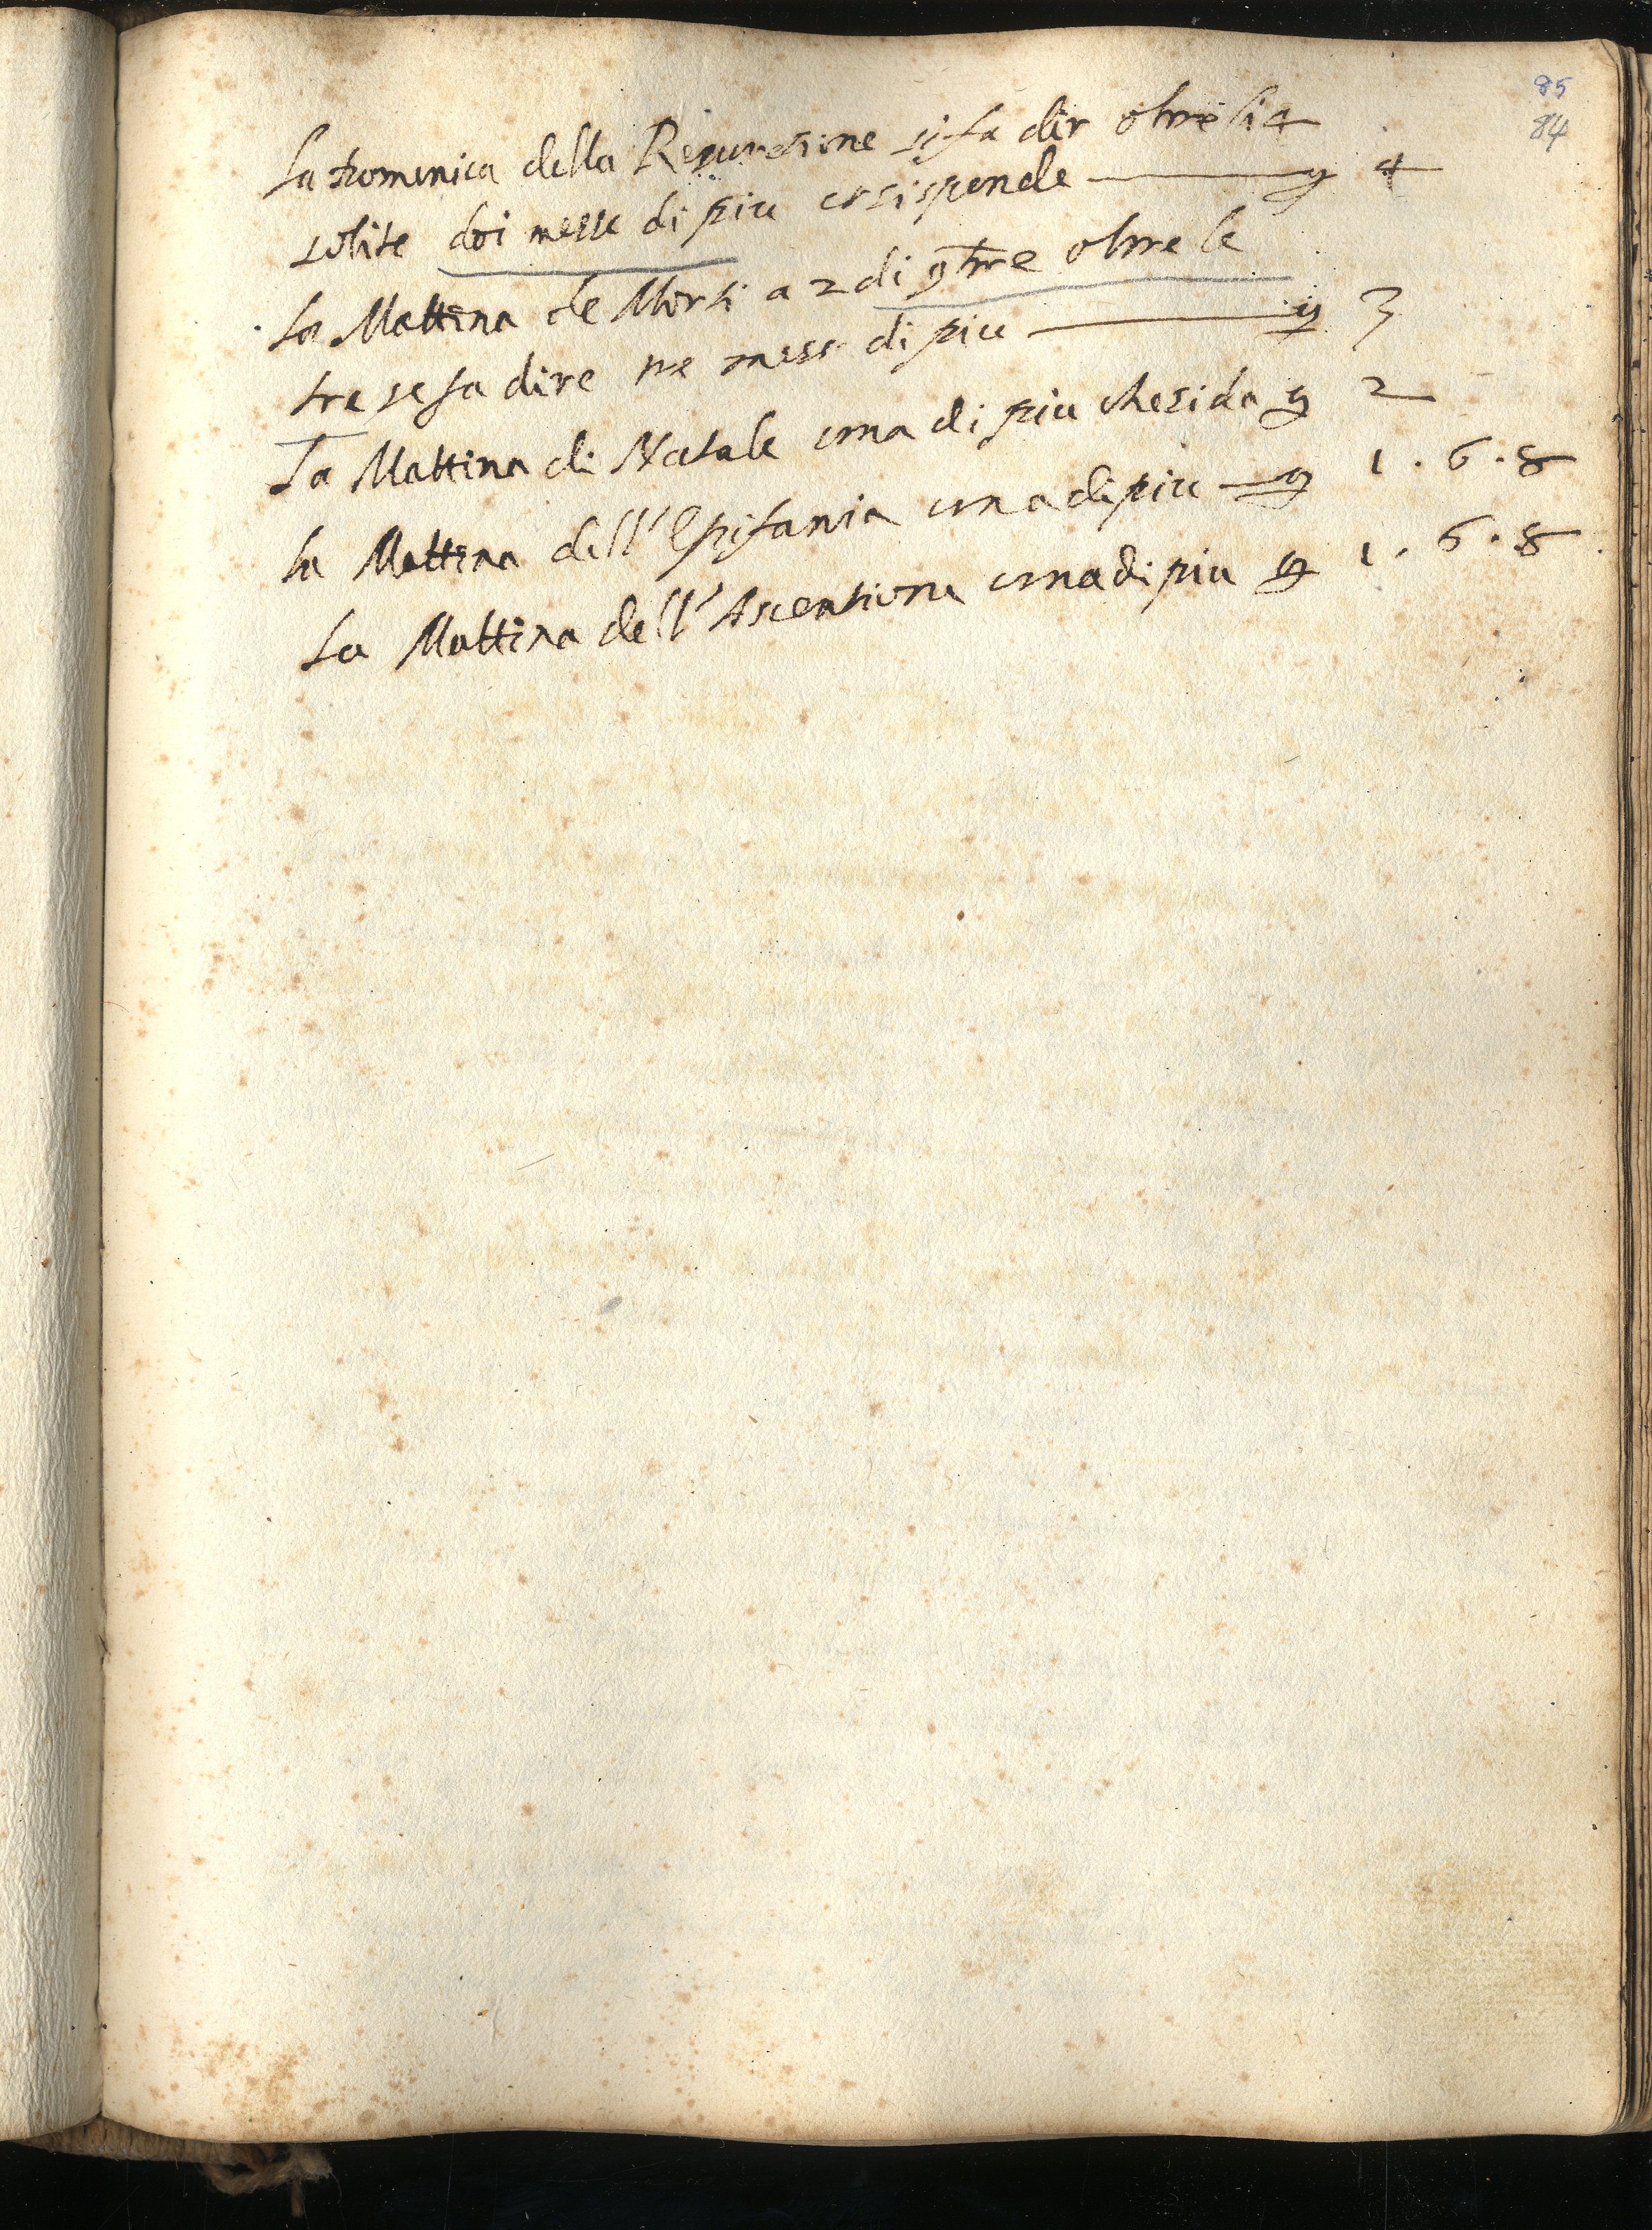 85
84
La Domenica della Resuresione si fa dir oltre li 4
solite doi messe di piu et si spende 4
La Mattina de Morti a 2 di 9bre oltre le
tre se fa dire tre messe di piu 3
La Mattina di Natale una di piu che si da 2
la Mattina dell'Epifania una di piu 1.6.8
La Mattina dell'Ascentione una di piu 1.6.8